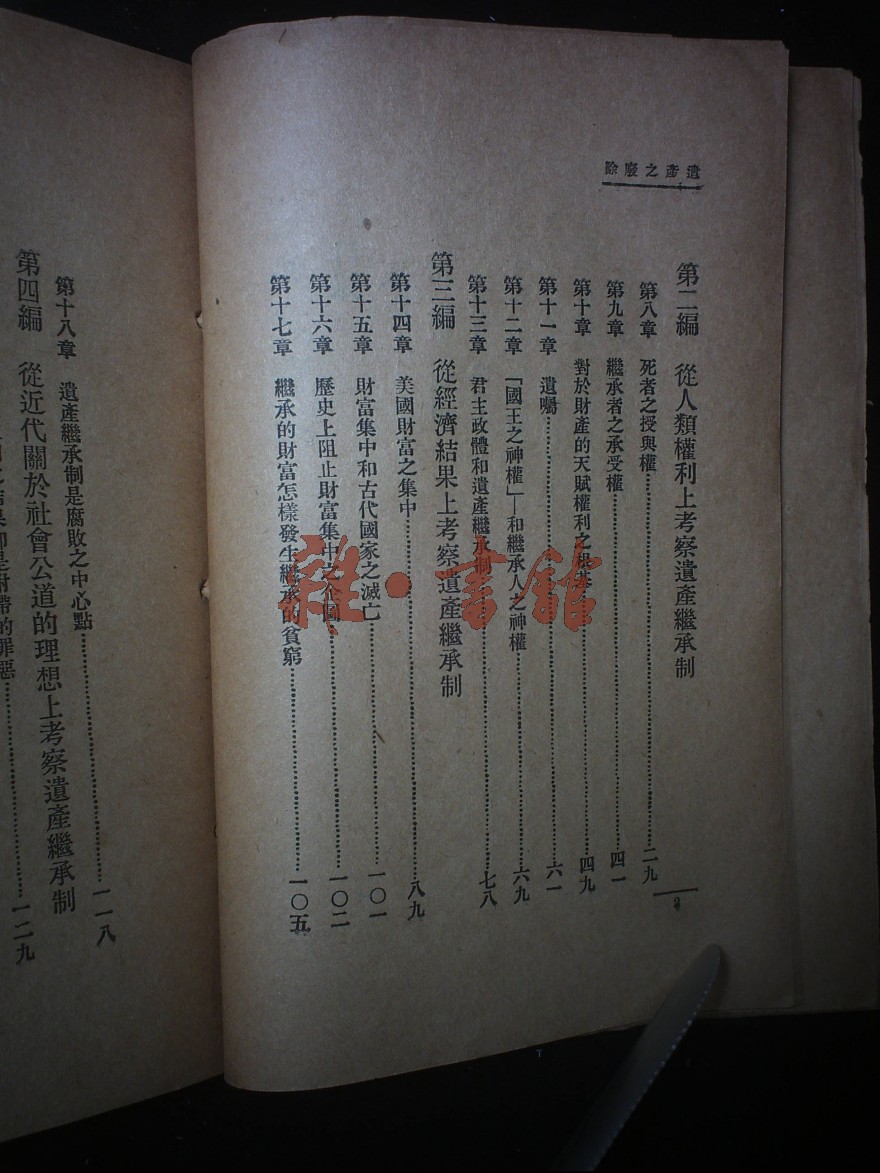 遺產之廢除
第二編 從人類權利上考察遺產繼承制
第八章 死者之授與權……二九
第九章 繼承者之承受權……四一
第十章 對於財產的天賦權利之根基……四九
第十一章 遺囑……六一
第十二章 「國王之神權」—和繼承人之神權……六九
第十三章 君主政體和遺產繼承制……七八
第三編 從經濟結果上考察遺產繼承制
第十四章 美國財富之集中……八九
第十五章 財富集中和古代國家之滅亡……一〇一
第十六章 歷史上阻止財富集中之企圖……一〇二
第十七章 繼承的財富怎樣發生繼承的貧窮……一〇五
2
第十八章 遺產繼承制是腐敗之中心點……一一八
第四編 從近代關於社會公道的理想上考察遺產繼承制
結果卽是附帶的罪惡……一二九
雜·書館